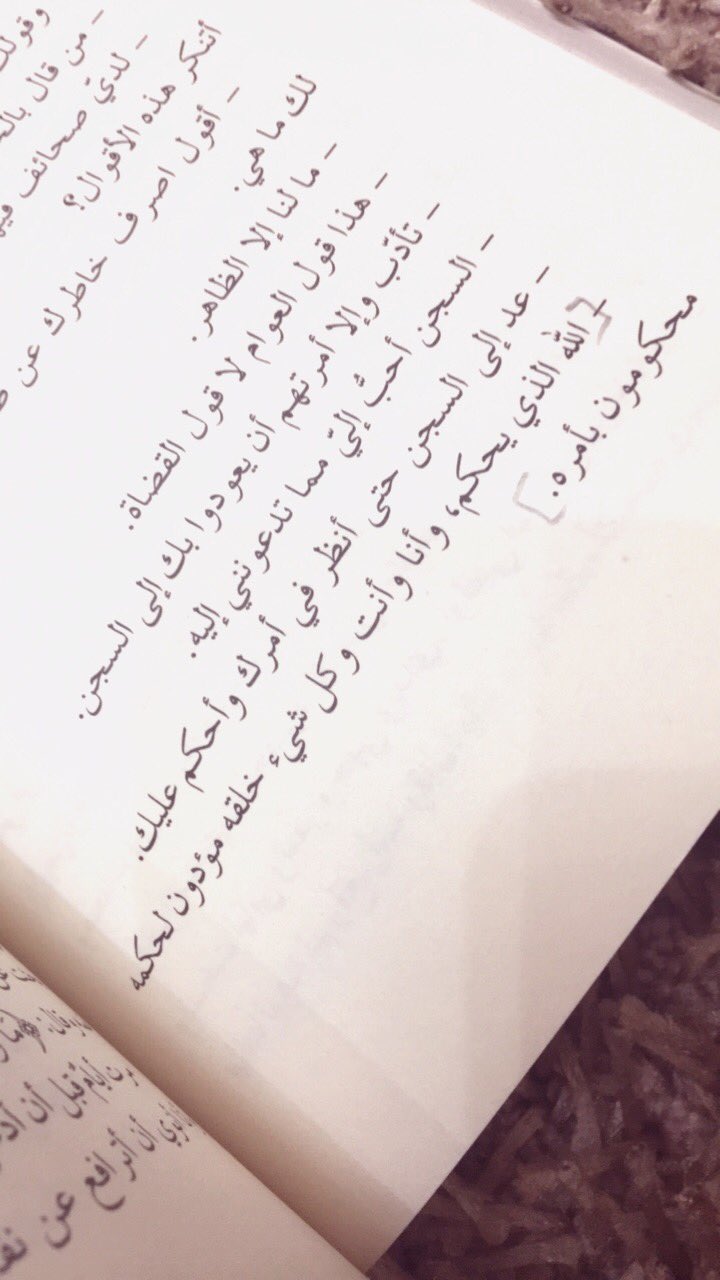 وقولك
- من قال
- لديّ صحائف
أتنكر هذه الأقوال؟
- أقول اصرف خاطرك عن
لك ما هي.
- ما لنا إلا الظاهر.
- هذا قول العوام لا قول القضاة.
- تأدّب وإلا أمرتهم أن يعودوا بك إلى السجن.
- السجن أحبُّ إليّ مما تدعونني إليه.
- عد إلى السجن حتى أنظر في أمرك وأحكم عليك.
- [الله الذي يحكم، وأنا وأنت وكل شيء خلقه مؤدون لحكمه
محكومون بأمره.]
قبل أن
أن أترافع عن